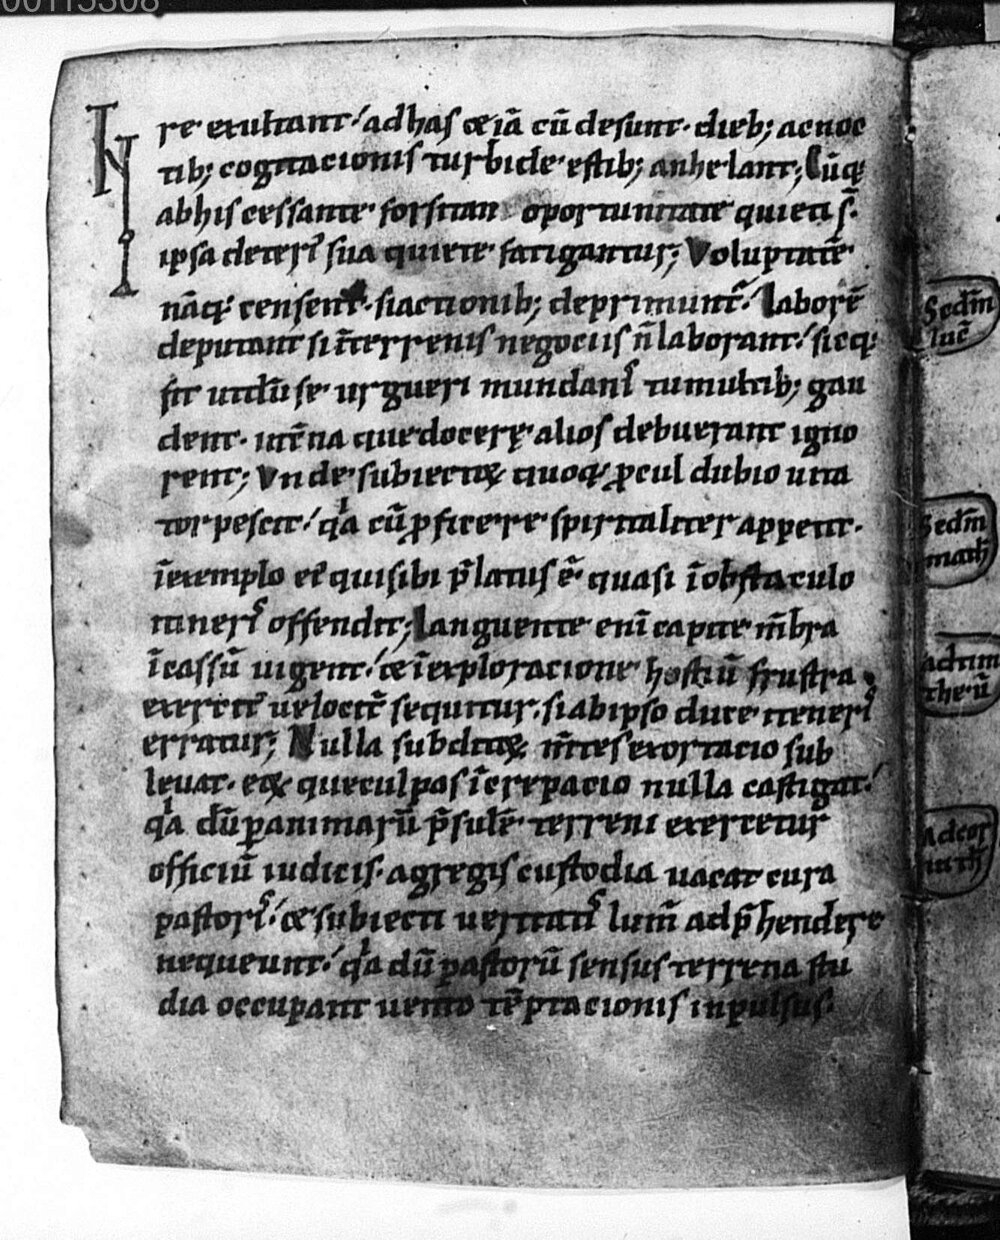 00115308
re exultant· ad has & iā cū desunt· dieb; ac noc
tib; cogitacionis turbide estib; anhelant; Cūq;
ab his cessante forsitan oportunitate quieti s̄·
ipsa deteri᷒ sua quiete fatigantur; Voluptatē
nāq; censent· si actionib; deprimunt᷒· Laborē
deputant si īterrenis negociis n̄ laborant· sicq;
fit ut dū se urgueri mundani᷒ tumultib; gau
dent· int̄na que docere alios debuerant igno
rent; Vnde subiectoꝝ quoq; ꝓcul dubio uita
torpescit· qͥa cū ꝓficere spiritaliter appetit·
ī exemplo ei᷒ qui sibi p̄latus ē· quasi ī obstaculo
itineri᷒ offendit; Languente enī capite m̄bra
īcassū uigent· & ī exploracione hostiū frustra
exercit᷒ uelocit̄ sequitur· si ab ipso duce iteneri᷒
erratur; Nulla subditoꝝ m̄tes exortacio sub
leuat· eoꝝ que culpas īcrepacio nulla castigat·
qͥa dū ꝑ animarū p̄sulē terreni exercetur
officiū iudicis· a gregis custodia uacat cura
pastori᷒· & subiecti ueritati᷒ lum̄ adp̄hendere
nequeunt· qͥa dū pastorū sensus terrena stu
dia occupant uento tēptacionis inpulsus·
Sedm̄
lucā
Sedm̄
math
ad tim
theū
Ad cor
inth